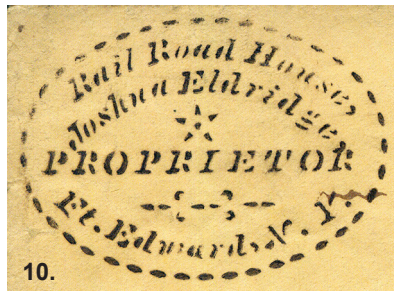 Rail Road House,
Joshua Eldridge,
PROPRIETOR
Ft. Edward, N. Y.
10.